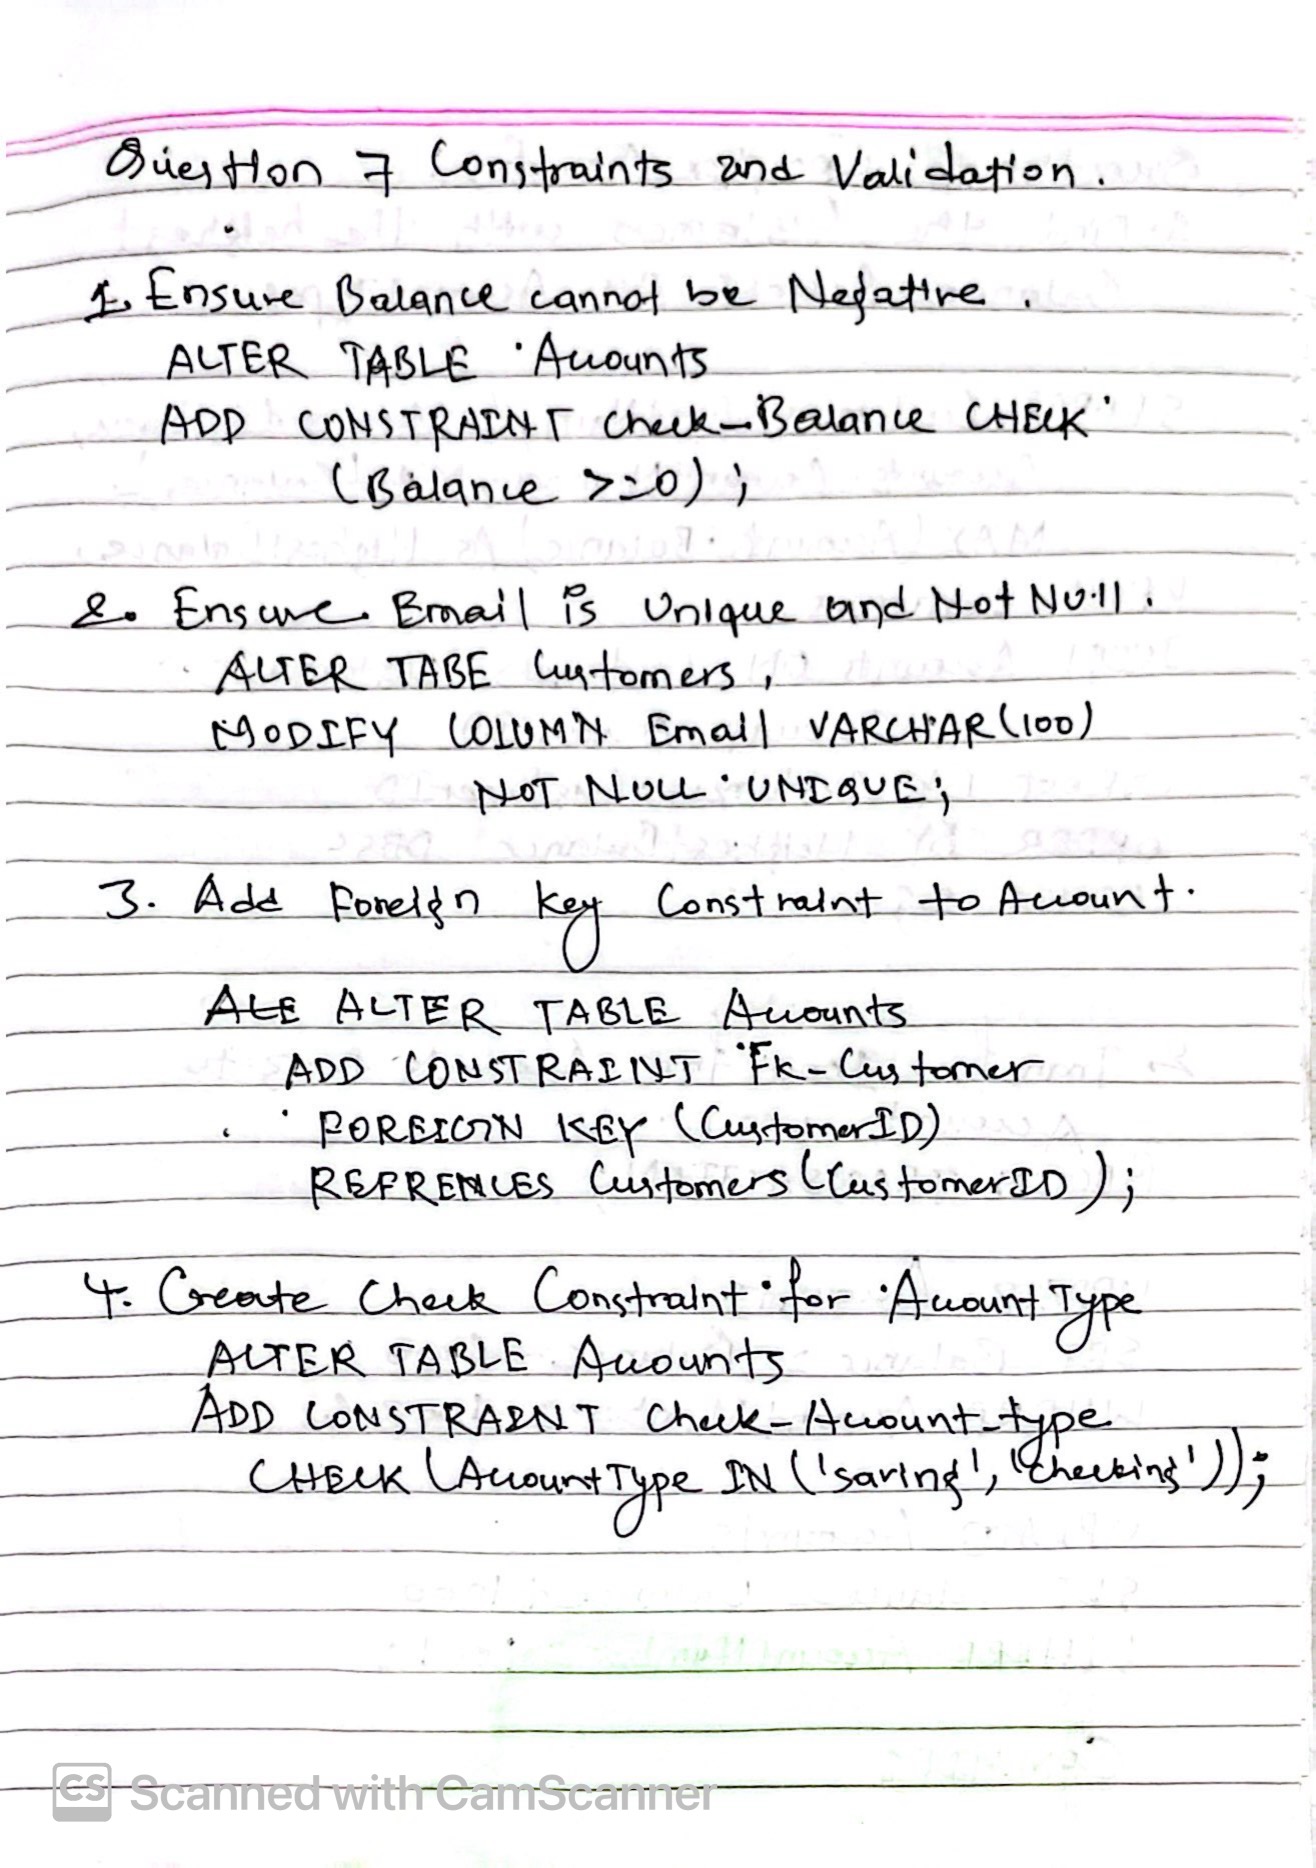 Question 7 Constraints and Validation.
1. Ensure Balance cannot be Negative.
ALTER TABLE Accounts
ADD CONSTRAINT check_Balance CHECK
(Balance >=0);
2. Ensure Email is Unique and Not Null.
ALTER TABE Customers,
MODIFY COLUMN Email VARCHAR(100)
NOT NULL UNIQUE;
3. Add Foreign key Constraint to Account.
ALE ALTER TABLE Accounts
ADD CONSTRAINT Fk-Customer
FOREIGN KEY (CustomerID)
REFRENCES Customers (CustomerID);
4. Create Check Constraint for Account Type
ALTER TABLE Accounts
ADD CONSTRAINT Check-Account-type
CHECK (AccountType IN ('saving', 'checking'));
CS Scanned with CamScanner